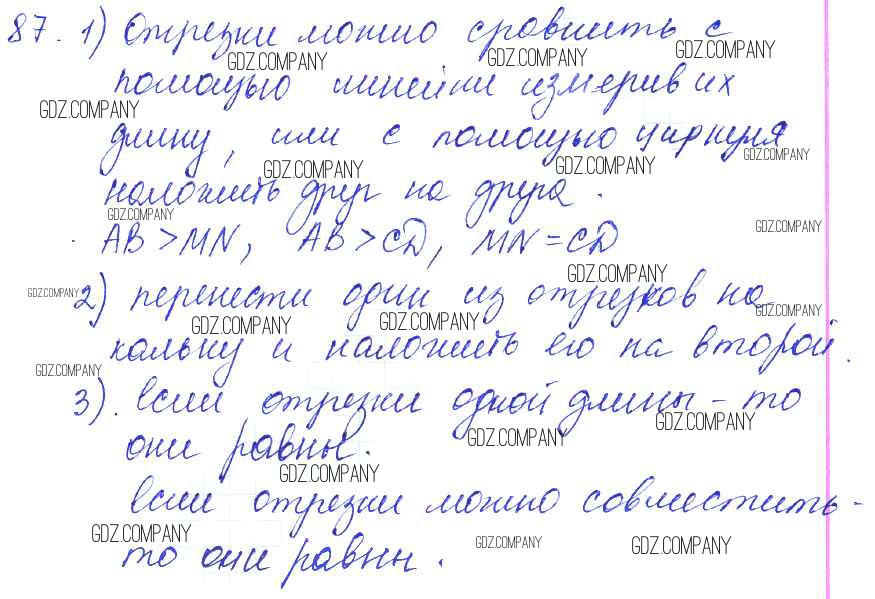 87. 1) Отрезки можно сравнить с
GDZ.COMPANY GDZ.COMPANY GDZ.COMPANY
помощью линейки измерив их
GDZ.COMPANY
длину, или с помощью циркуля
GDZ.COMPANY GDZ.COMPANY GDZ.COMPANY
наложить друг на друга.
GDZ.COMPANY GDZ.COMPANY
AB > MN, AB > CD, MN = CD
GDZ.COMPANY
GDZ.COMPANY 2) перенести один из отрезков на
GDZ.COMPANY GDZ.COMPANY GDZ.COMPANY
кальку и наложить его на второй.
GDZ.COMPANY
3). Если отрезки одной длины - то
GDZ.COMPANY GDZ.COMPANY
они равны.
GDZ.COMPANY
Если отрезки можно совместить -
GDZ.COMPANY
то они равны.
GDZ.COMPANY GDZ.COMPANY